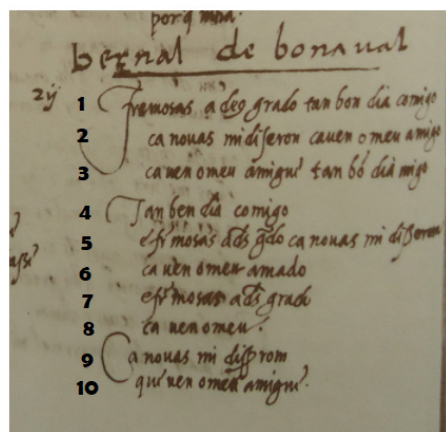 por q̃ mha.
bernal de bonaual
1 Fremosas a deo grado tan bon dia comigo
2 ca nouas mi diseron ca uen o meu amigo
3 ca uen o meu amigu' tan bõ dia migo
4 Tan ben dia comigo
5 e fr'mosas a ds̃ gdo ca nouas mi diseron
6 ca uen o meu amado
7 e fr'mosas a ds̃ grado
8 ca uen o meu.
9 Ca nouas mi disserom
10 que uen o meu amigu'.